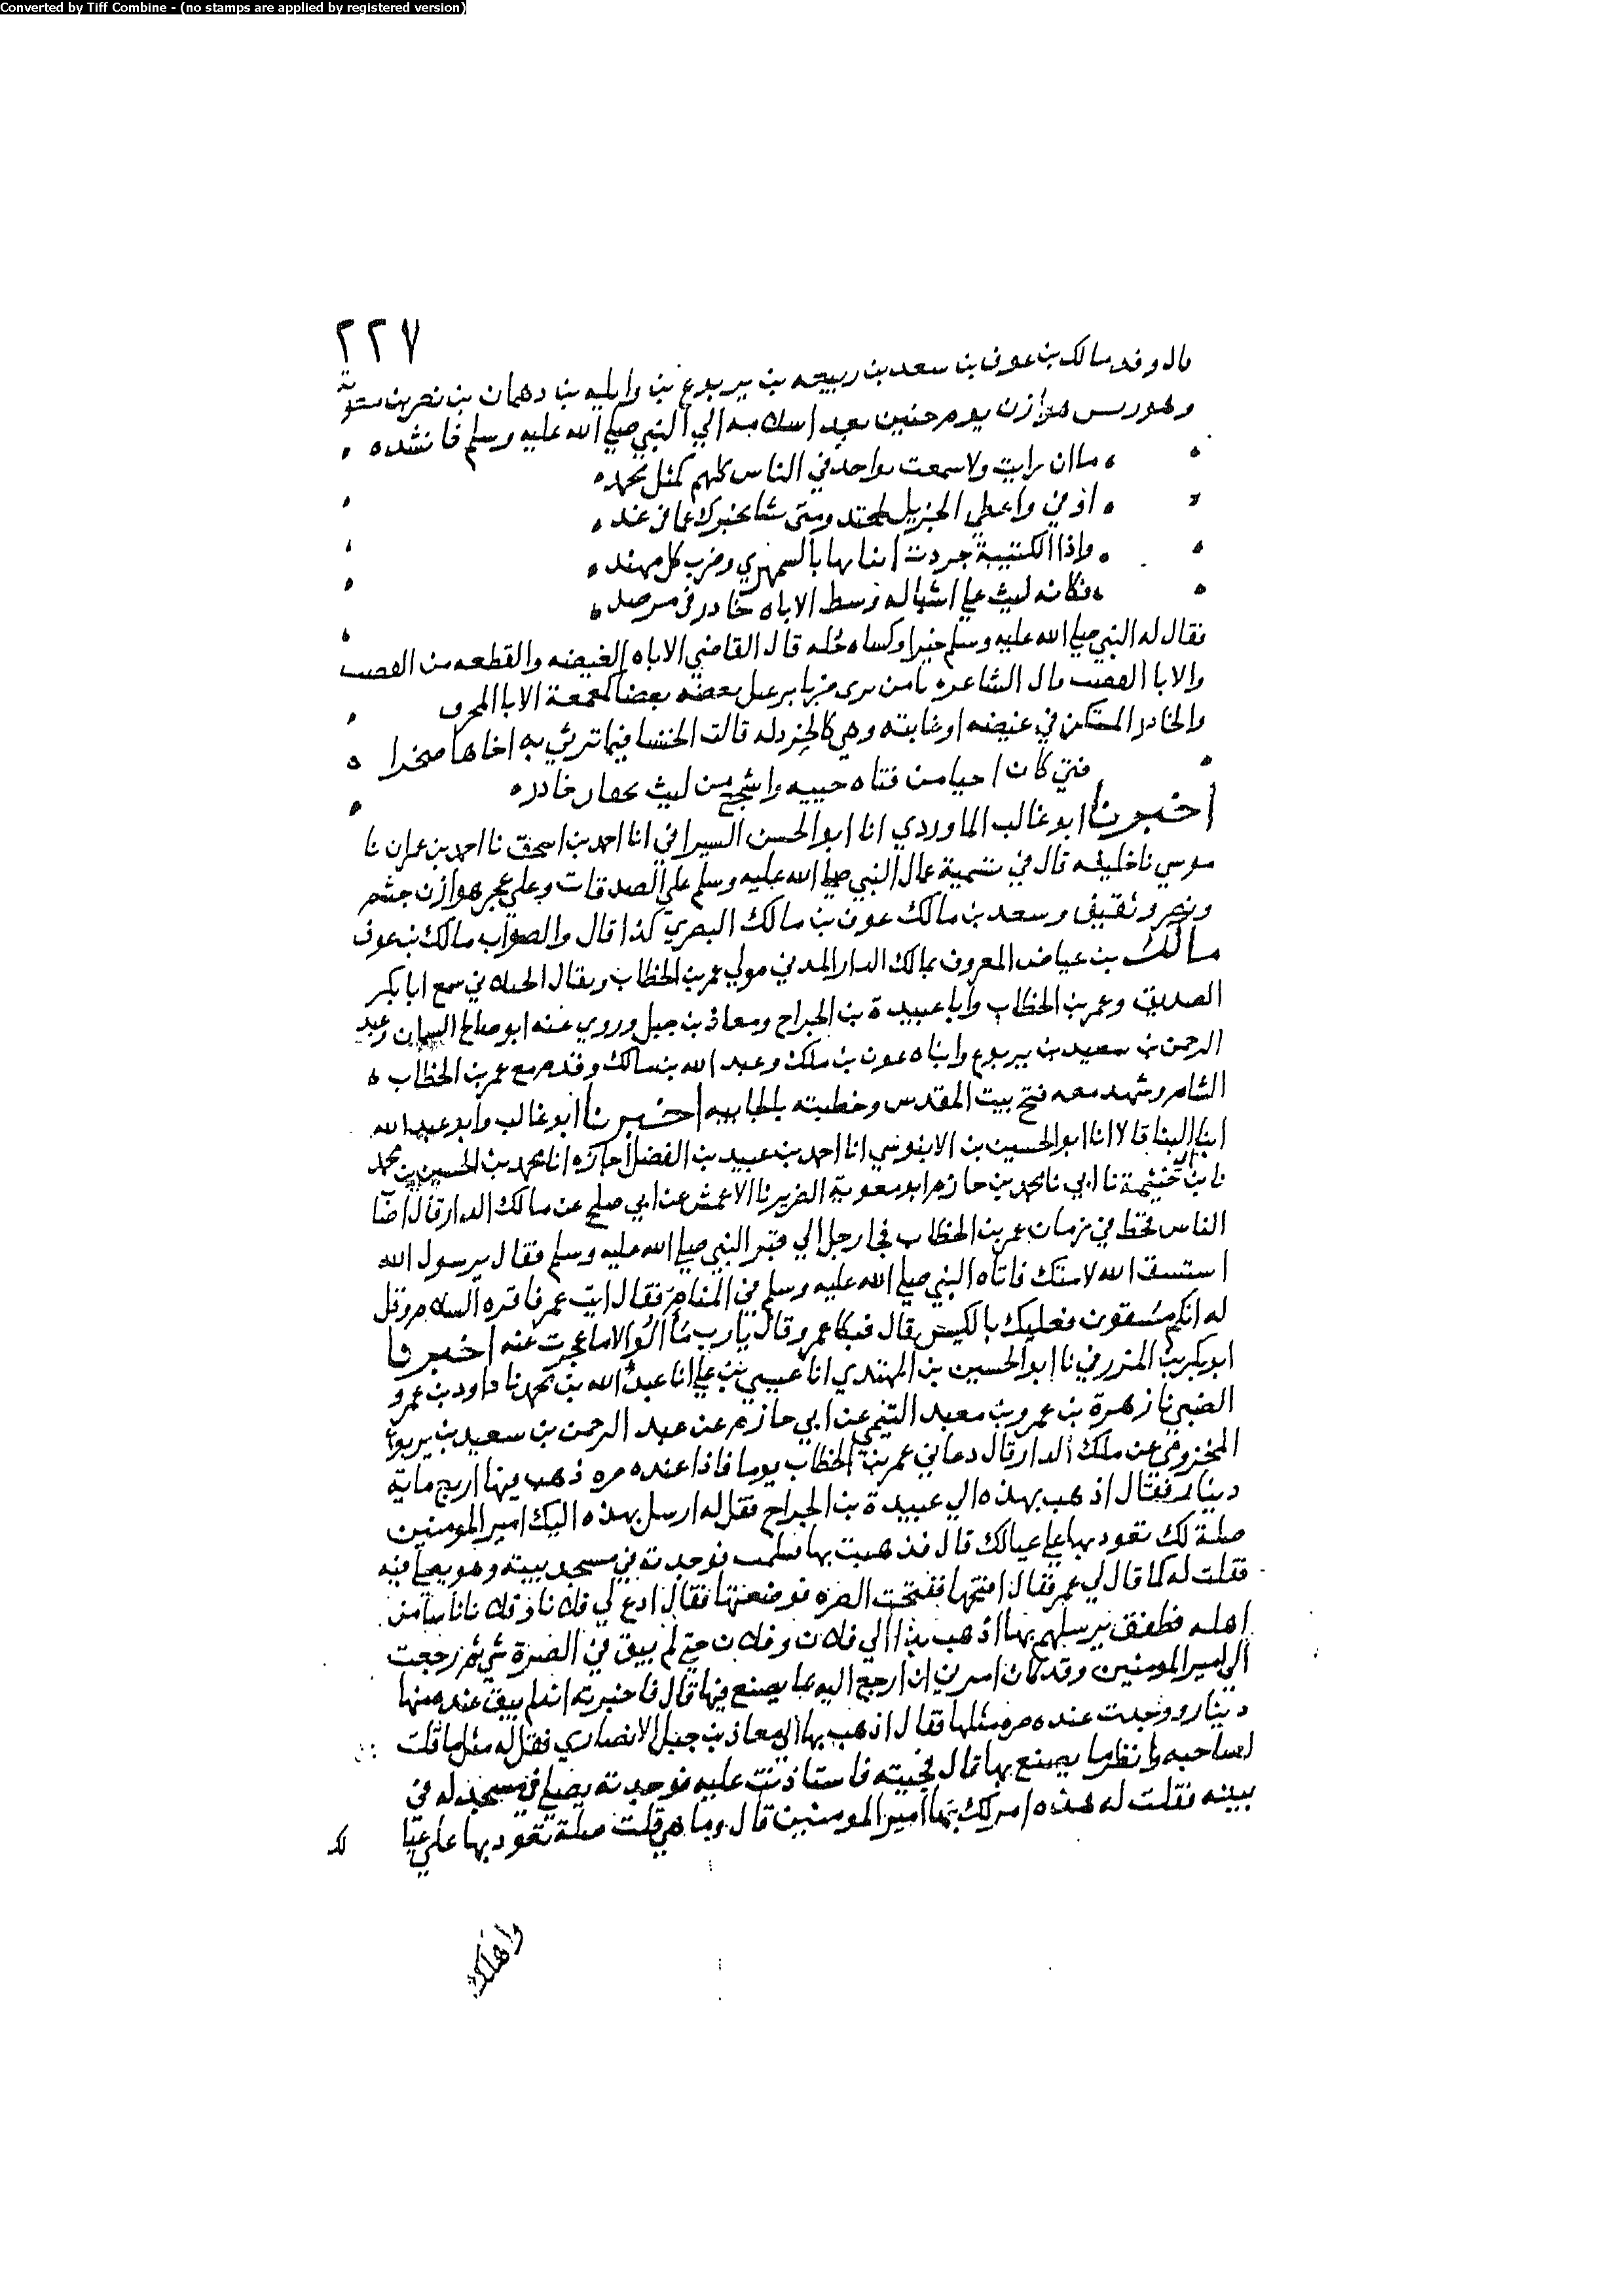 Converted by Tiff Combine - (no stamps are applied by registered version)
٢٢٧
قال وفد مالك بن عوف بن سعد بن ربيعه بن يربوع بن وايله بن دهمان بن نصر بن
وهو ريس هوازن يوم حنين بعد اسلامه الي النبي صلي الله عليه وسلم فانشده
ما ان رايت ولا سمعت بواحد في الناس كلهم كمثل محمد
اوفي واعطي الجزيل لمجتد ومتى تشا يخبرك عما في غد
واذا الكتيبة جردت انيابها بالسمهري وضرب كل مهند
فكانه ليث علي اشباله وسط الاباه خادر في مرصد
فقال له النبي صلي الله عليه وسلم خيرا وكساه حله قال القاضي الاباه الغيضه والقطعه من القصب
والابا القصب قال الشاعر يا من يرى ضربا يرعبل بعضه بعضا كمعمعة الابا المحرق
والخادر المتمكن في غيضه او غابته وهي كالخدر له قالت الخنسا فيما ترثي به اخاها صخرا
فتى كان احيا من فتاه حييه واشجع من ليث بخفان خادر
اخبرنا ابو غالب الماوردي انا ابو الحسن السيرافي انا احمد بن اسحق نا احمد بن عمران نا
موسي نا خليفه قال في تسمية عمال النبي صلي الله عليه وسلم علي الصدقات وعلي عجز هوازن جشم
ونصر وثقيف وسعد بن مالك عوف بن مالك البصري كذا قال والصواب مالك بن عوف
مالك بن عياض المعروف بمالك الدار المدني مولي عمر بن الخطاب ويقال الجبلاني سمع ابا بكر
الصديق وعمر بن الخطاب وابا عبيدة بن الجراح ومعاذ بن جبل وروي عنه ابو صالح السمان وعبد
الرحمن بن سعيد بن يربوع وابناه عون بن ملك وعبد الله بن مالك وقدم مع عمر بن الخطاب
الشام وشهد معه فتح بيت المقدس وخطبته بالجابيه اخبرنا ابو غالب وابو عبد الله
ابنا البنا قالا انا ابو الحسين بن الابنوسي انا احمد بن عبيد بن الفضل اجازه انا محمد بن الحسين بن محمد
نا بن ابي خيثمة نا ابي نا محمد بن حازم ابو معوية الضرير نا الاعمش عن ابي صلح عن مالك الدار قال اصاب
الناس قحط في زمان عمر بن الخطاب فجا رجل الي قبر النبي صلي الله عليه وسلم فقال يرسول الله
استسق الله لامتك فاتاه النبي صلي الله عليه وسلم في المنام فقال ايت عمر فاقره السلام وقل
له انكم مسقون فعليك بالكيس قال فبكا عمر وقال يا رب ما الوا الا ما عجزت عنه اخبرنا
ابو بكر بن المزرفي نا ابو الحسين بن المهتدي انا عيسي بن علي انا عبد الله بن محمد نا داود بن عمرو
الضبي نا زهرة بن عمرو بن معبد التيمي عن ابي حازم عن عبد الرحمن بن سعيد بن يربوع
المخزومي عن ملك الدار قال دعاني عمر بن الخطاب يوما فاذا عنده صره ذهب فيها اربع ماية
دينار فقال اذهب بهذه الي عبيدة بن الجراح فقل له ارسل بهذه اليك امير المومنين
صلة لك تعود بها علي عيالك قال فذهبت بها فوجدته في مسجد بيته وهو يصلي فيه
فقلت له كما قال لي عمر فقال افتحها ففتحت الصره فوضعتها فقال ادع لي فلانا وفلانا ناسا من
اهله فطفق يرسلهم بها اذهب بذا الي فلان وفلان حتى لم يبق في الصرة شي ثم رجعت
الي امير المومنين وقد كان امرني ان ارجع اليه بما يصنع فيها قال فاخبرته انه لم يبق عنده منها
دينار ووجدت عنده صره مثلها فقال اذهب بها الي معاذ بن جبل الانصاري فقل له مثل ما قلت
لصاحبه وانظر ما يصنع بها قال فجيته فاستاذنت عليه فوجدته يصلي في مسجد له في
بيته فقلت له هذه امر لك بها امير المومنين قال وما هي قلت صلة تعود بها على عيا لك
واهلك